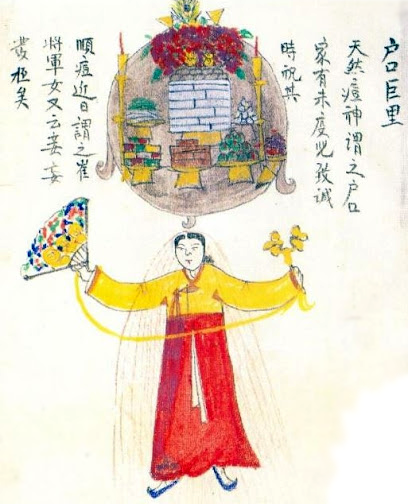 戶口巨里
天然痘神謂之戶口
家有未度兒致誠
時祝其
順痘近日謂之崔
將軍女又云妾妄
發極矣